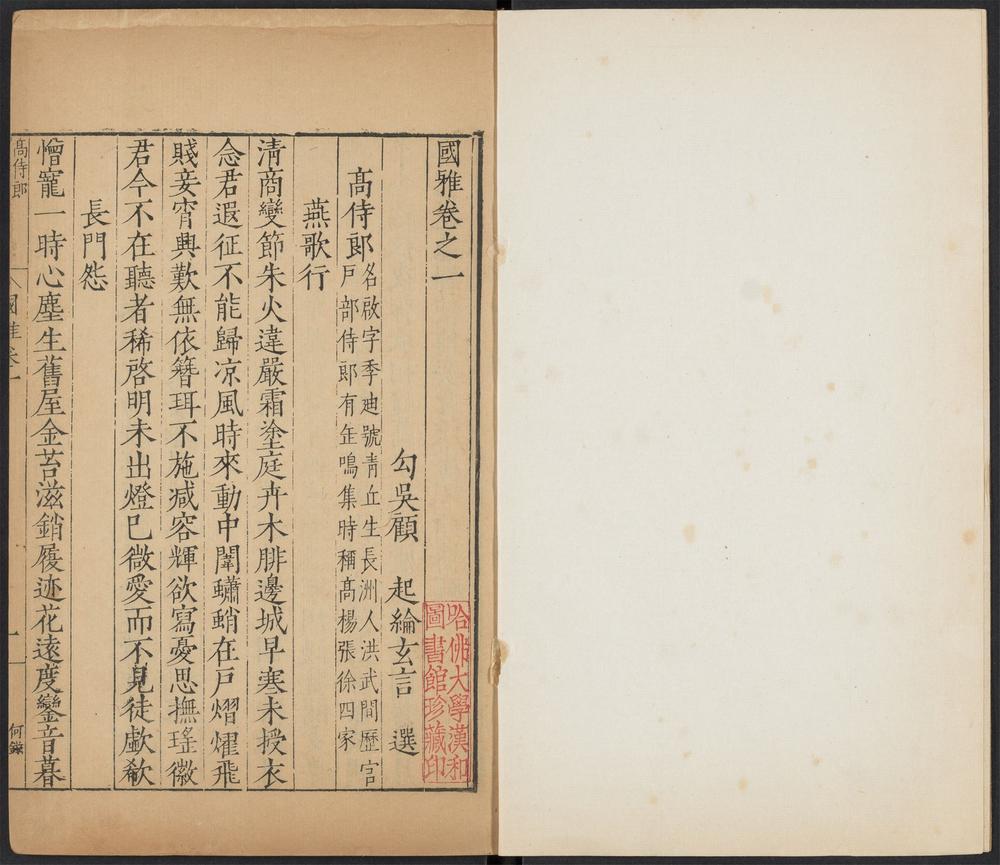 國雅卷之一
勾吳顧 起綸玄言 選
哈佛大學漢和
圖書館珍藏印
高侍郎 名啟字季迪號青丘生長洲人洪武間歷官
戶部侍郎有缶鳴集時稱高楊張徐四家
燕歌行
清商變節朱火違嚴霜塗庭卉木腓邊城早寒未授衣
念君遐征不能歸凉風時來動中闈蠨蛸在戶熠燿飛
賤妾宵興歎無依簪珥不施減容輝欲寫憂思撫瑤徽
君今不在聽者稀啓明未出燈已微愛而不見徒歔欷
長門怨
憎寵一時心塵生舊屋金苔滋銷履迹花遠度鑾音暮
高侍郎
國雅卷一
一
何鎡